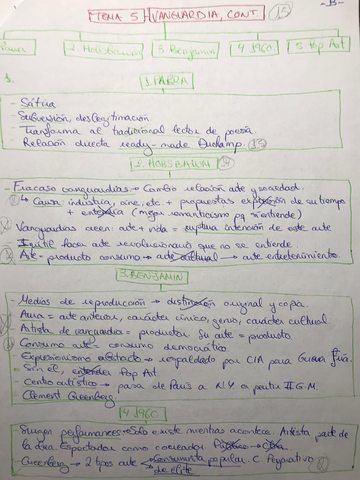 TEMA 5 VANGUARDIA, CONT. 15
-B-
2. Hobsbawm 3. Benjamin 4. 1960 5. Pop Art
1.
1. PARRA
- Sátira
- Subversión, deslegitimación
- Transforma al tradicional lector de poesía.
- Relación directa ready-made Duchamp. 15
2. HOBSBAWM
- Fracaso vanguardias → Cambio relación arte y sociedad.
↳ Causa: industria, cine, etc. + propuestas expresión de su tiempo
+ (mejor romanticismo pq si entiende)
- Vanguardias creen: arte + vida = ruptura intención de este arte
- Inútil hacer arte revolucionario que no se entiende.
- Arte = producto consumo → arte cultural → arte entretenimiento.
3. BENJAMIN
- Medios de reproducción → distinción original y copia.
- Aura = arte anterior, carácter único, genio, carácter cultural
- Artista de vanguardia = productor. Su arte = producto
- Consumo arte = consumo democrático.
- Expresionismo abstracto → respaldado por CIA para Guerra Fría.
- Sin él, entender Pop Art
- Centro artístico → pasa de París a N.Y a partir II G.M.
- Clement Greenberg.
4. 1960
- Surgen performances → Solo existe mientras acontece. Artista parte de
la obra. Espectador como cocreador.
- Greenberg → 2 tipos arte → Consumista popular.
→ de élite